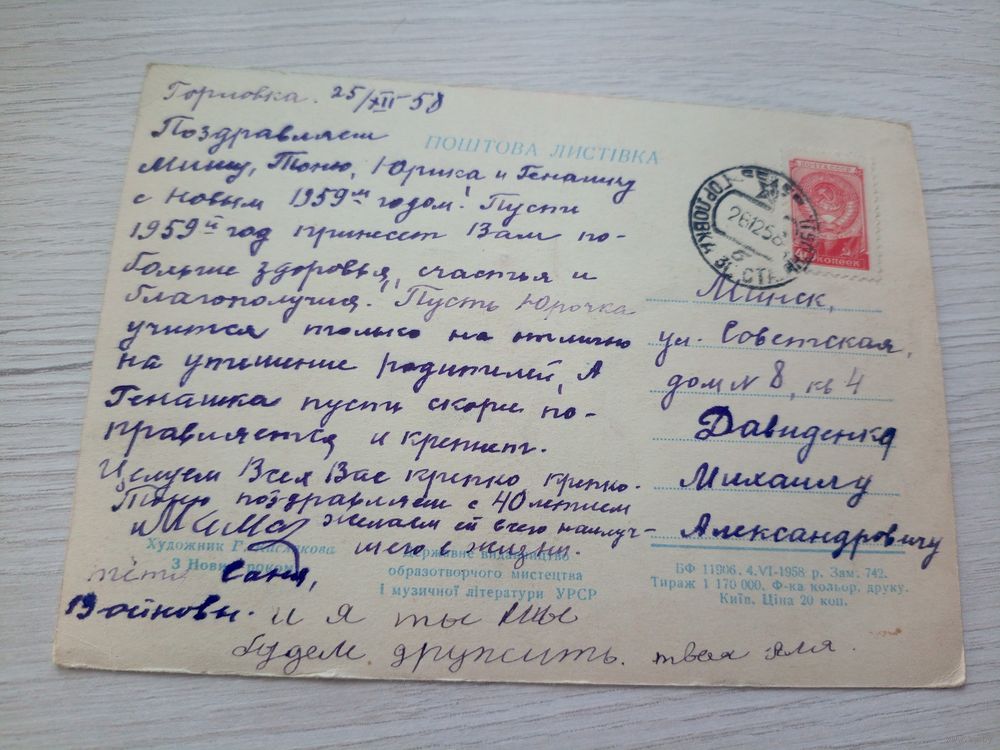 Горловка. 25/XII 58
Поздравляем
ПОШТОВА ЛИСТІВКА
Мишу, Тоню, Юрика и Генашу
с новым 1959м годом! Пусть
1959й год принесет Вам по-
больше здоровья, счастья и
благополучия. Пусть Юрочка
учится только на отлично
на утешение родителей, А
Генашка пусть скорее по-
правляется и крепнет.
Целуем Всех Вас крепко крепко.
Тоню поздравляем с 40 летием
и желаем ей всего наилуч-
шего в жизни.
Художник Г.
З Новим роком
тётя Саня,
Войновы.
и я ты
будем дружить. твая Аля.
Державне видавництво
образотворчого мистецтва
і музичної літератури УРСР
ПОЧТА СССР
ГОРЛОВКА
261258
Минск,
ул. Советская,
дом N 8, кв 4
Давиденко
Михаилу
Александровичу
БФ 11906. 4.VI-1958 р. Зам. 742.
Тираж 1 170 000. Ф-ка кольор. друку.
Київ. Ціна 20 коп.